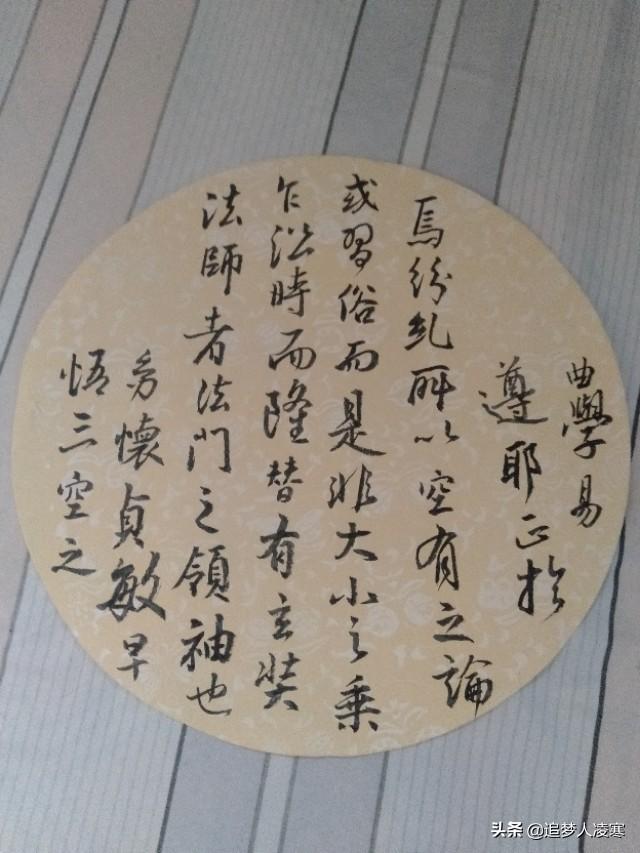 曲學易
遵耶正於
焉紛乱所以空有之論
或習俗而是非大小之乗
乍沿時而隆替有玄奘
法師者法門之領袖也
㓜懷貞敏早
悟三空之
头条 @追梦人凌寒